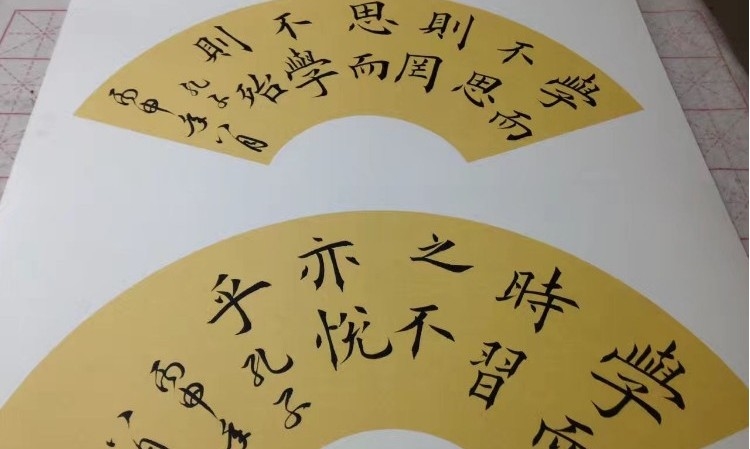 學而
不思
則罔
思而
不學
則殆
孔子
丙申年八月
學而
時習
之不
亦悅
乎孔子
丙申年
八月